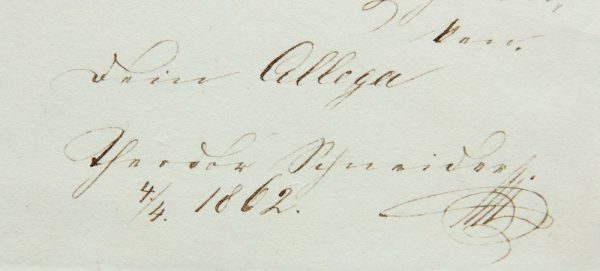 Dein Collega
Theodor Schneider.
4/4. 1862.